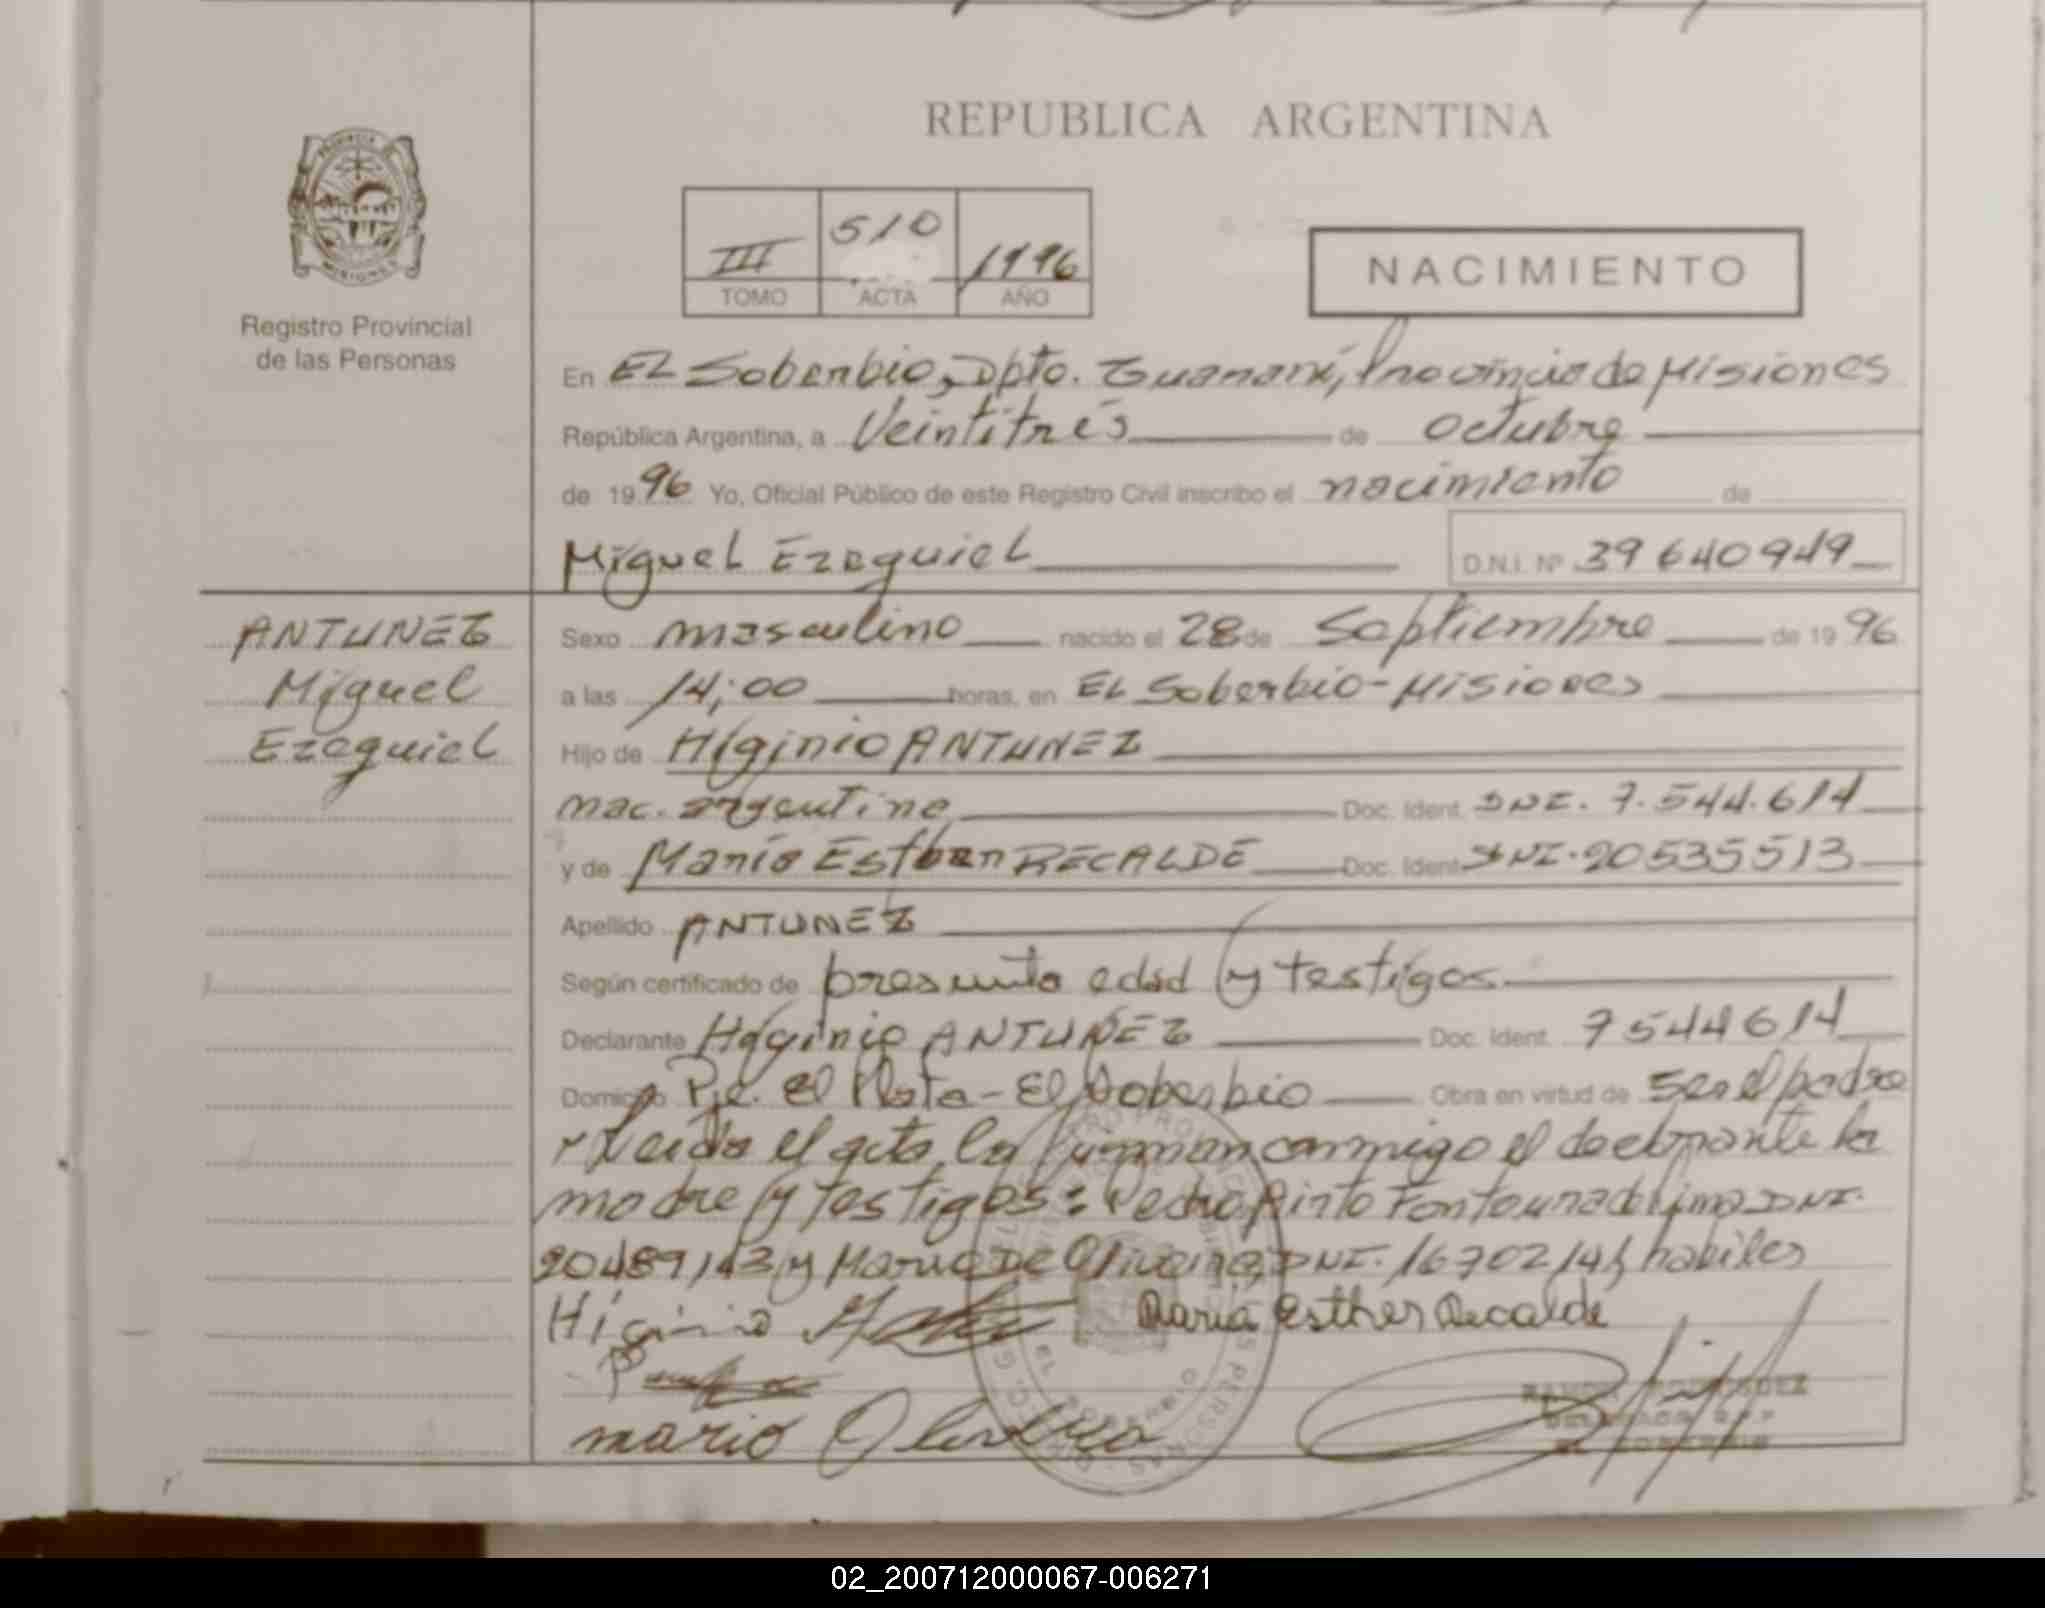 REPUBLICA ARGENTINA
PROVINCIA
MISIONES
Registro Provincial
de las Personas
III 510 1996
TOMO ACTA AÑO
NACIMIENTO
En EL Soberbio, Dpto. Guaraní, Provincia de Misiones
República Argentina, a Veintitrés de octubre
de 1996 Yo, Oficial Público de este Registro Civil inscribo el nacimiento de
Miguel Ezequiel D.N.I. Nº 39640949
ANTUNEZ
Miguel
Ezequiel
Sexo masculino nacido el 28 de Septiembre de 1996
a las 14:00 horas, en EL Soberbio-Misiones
Hijo de Higinio ANTUNEZ
nac. argentino Doc. Ident. DNI. 7.544.614
y de María Ester RECALDE Doc. Ident. DNI. 20535513
Apellido ANTUNEZ
Según certificado de presunta edad y testigos
Declarante Higinio ANTUNEZ Doc. Ident. 7544614
Domicilio Pje. El Plata - El Soberbio Obra en virtud de ser el padre
Leída el acta la firman conmigo el declarante la
madre y testigos: Pedro Pinto Fontoura de Lima DNI.
20489143 y Mario De Oliveira, DNI. 16302141, hábiles
Higinio
Maria Esther Recalde
mario Olivera
EL SOBERBIO
02_200712000067-006271